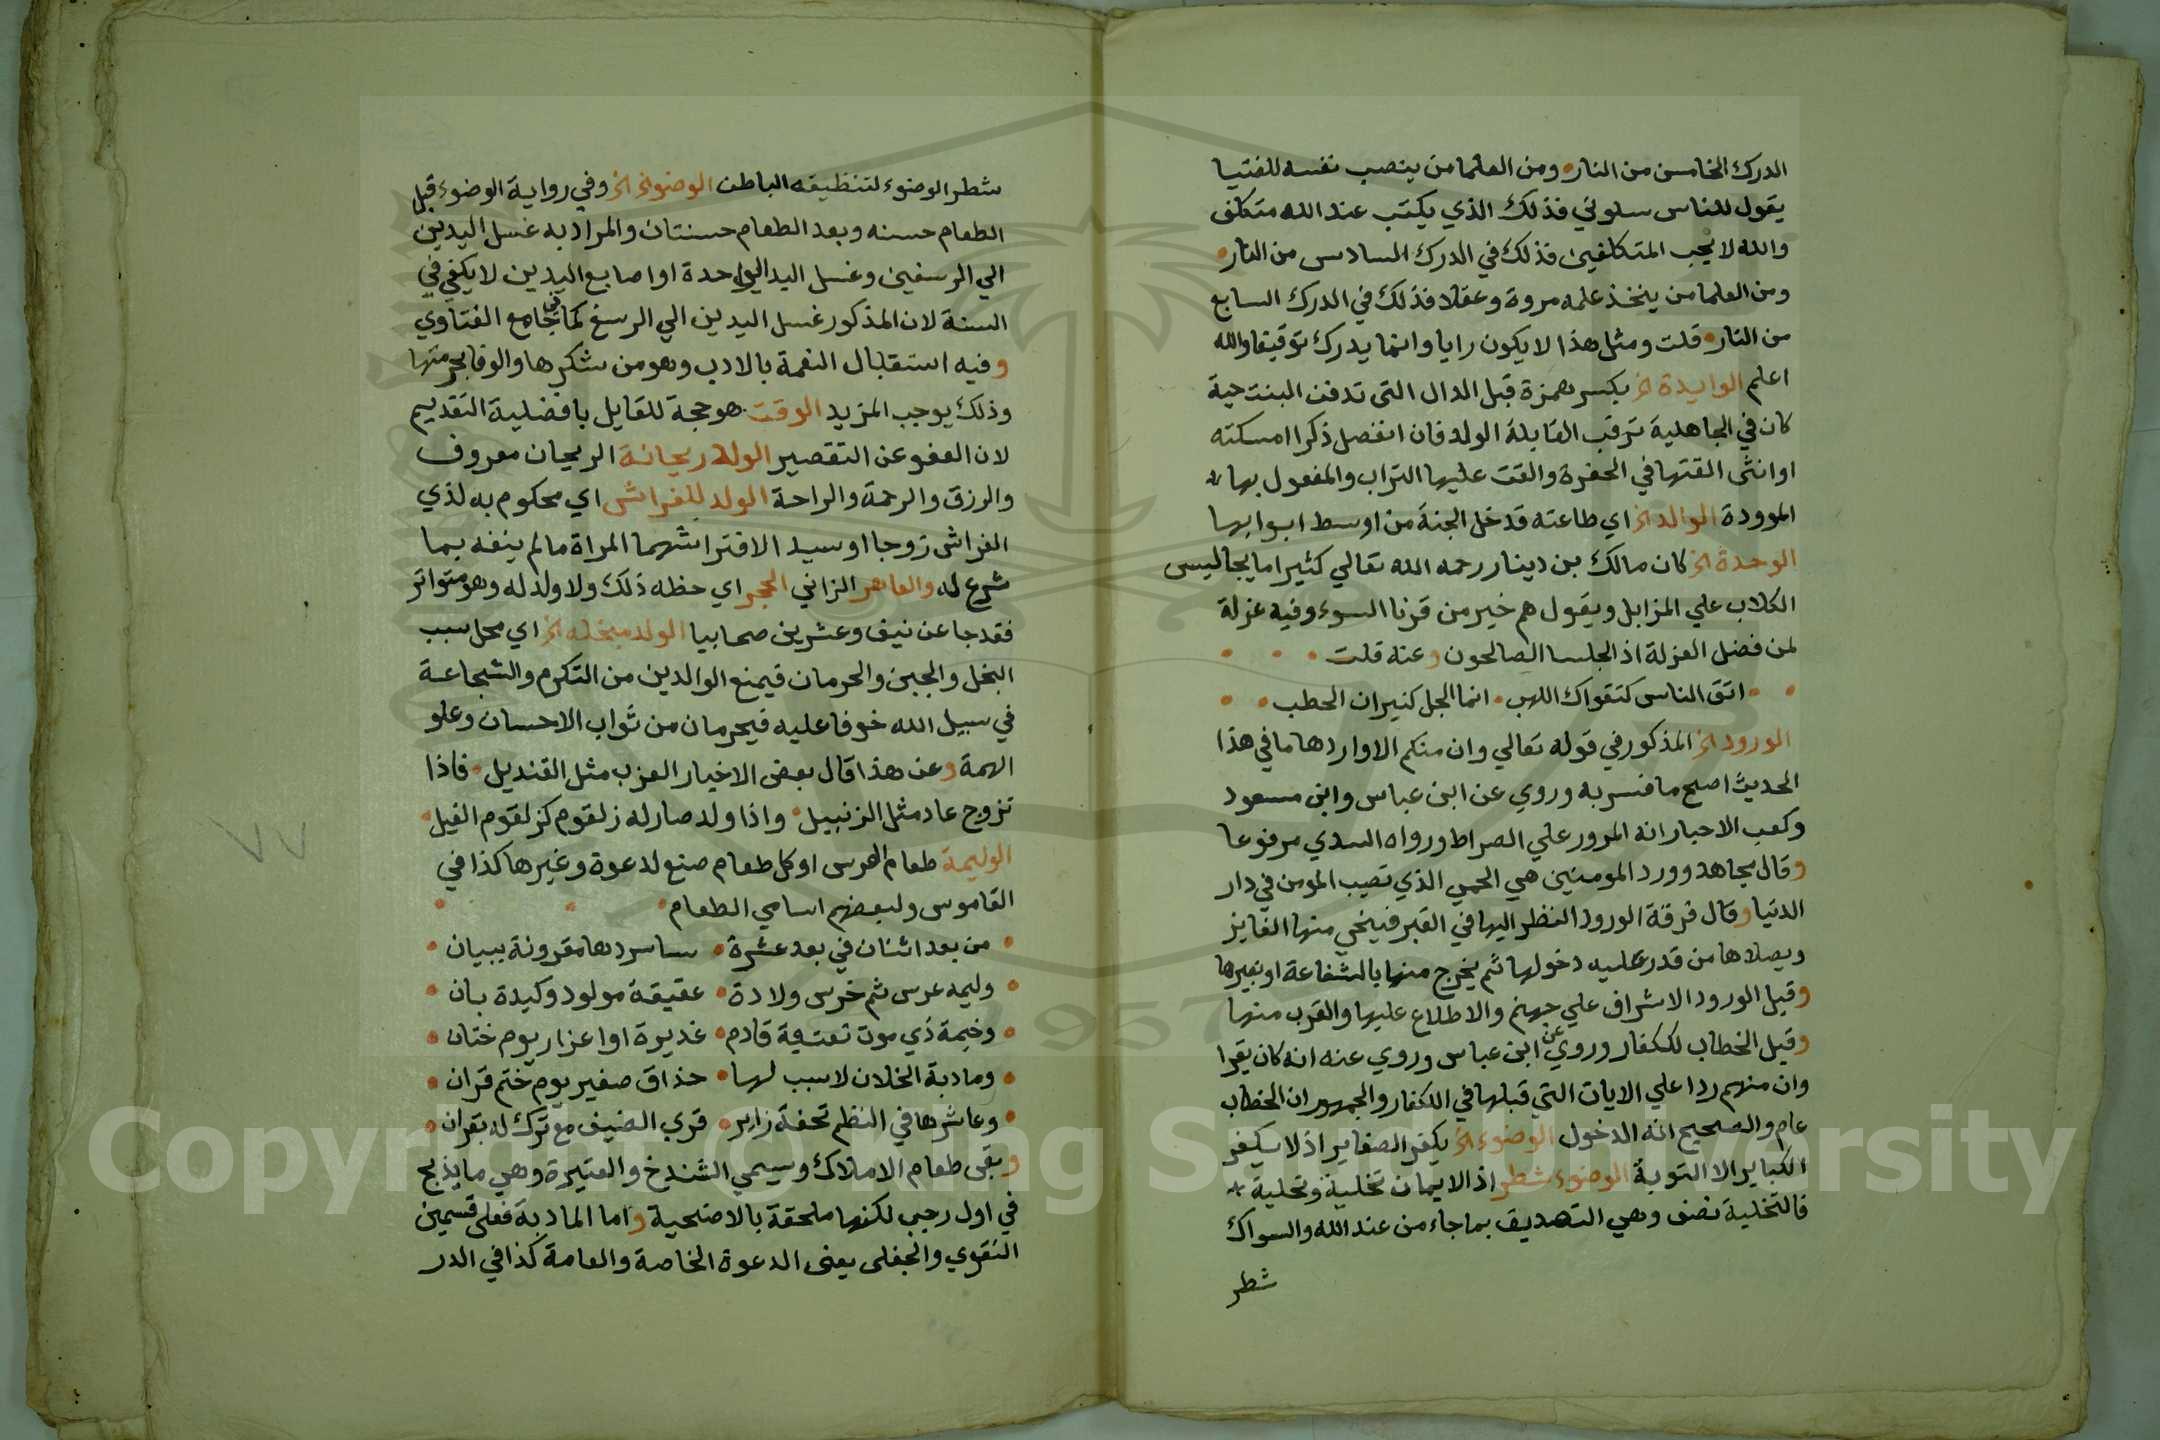 الدرك الخامس من النار ومن العلما من ينصب نفسه للفتيا
يقول للناس سلوني فذلك الذي يكتب عند الله متكلف
والله لا يحب المتكلفين فذلك في الدرك السادس من النار
ومن العلما من يتخذ علمه مروة وعقلا فذلك في الدرك السابع
من النار قلت ومثل هذا لا يكون رايا وانما يدرك توقيفا والله
اعلم الوايدة الخ بكسر همزة قبل الدال التي تدفن البنت حية
كان في الجاهلية ترقب القابلة الولد فان انفصل ذكرا امسكته
او انثى القتها في الحفرة والقت عليها التراب والمفعول بها
الموودة الوالد الخ اي طاعته قدخل الجنة من اوسط ابوابها
الوحدة الخ كان مالك بن دينار رحمه الله تعالي كثيرا ما يجاليس
الكلاب علي المزابل ويقول هم خير من قرنا السوء وفيه عزلة
لمن فضل العزلة اذ الجلسا الصالحون وعنه قلت
اتق الناس كتقواك اللهب انما الجل كنيران الحطب
الورود الخ المذكور في قوله تعالي وان منكم الا واردها ما في هذا
الحديث اصح ما فسر به وروي عن ابن عباس وابن مسعود
وكعب الاحبار انه المرور علي الصراط ورواه السدي مرفوعا
وقال مجاهد وورد المومنين هي الحمي الذي تصيب المومن في دار
الدنيا وقال فرقة الورود النظر اليها في القبر فينجي منها الفايز
ويصلاها من قدر عليه دخولها ثم يخرج منها بالشفاعة او بغيرها
وقيل الورود الاشراف علي جهنم والاطلاع عليها والقرب منها
وقيل الخطاب للكفار وروي عن ابن عباس وروي عنه انه كان يقرا
وان منهم ردا علي الايات التي قبلها في الكفار والجمهور ان الخطاب
عام والصحيح انه الدخول الوضوء الخ يكفر الصغاير اذ لا يكفر
الكباير الا التوبة الوضوء شطر اذ الايمان تخلية وتحلية
فالتخلية نصف وهي التصديق بما جاء من عند الله والسواك
شطر
شطر الوضوء لتنظيفه الباطن الوضوء الخ وفي رواية الوضوء قبل
الطعام حسنه وبعد الطعام حسنتان والمراد به غسل اليدين
الي الرسغين وغسل اليد الواحدة او اصابع اليدين لا يكفي في
السنة لان المذكور غسل اليدين الي الرسغ كما في جامع الفتاوي
وفيه استقبال النعمة بالادب وهو من شكرها والوفا بحرمتها
وذلك يوجب المزيد الوقت هو حجة للقايل بافضلية التقديم
لان العفو عن التقصير الولد ريحانة الريحان معروف
والرزق والرحمة والراحة الولد للفراش اي محكوم به لذي
الفراش زوجا او سيد الافتراشهما المراة ما لم ينفه بما
شرع له والعاهر الزاني الحجر اي حظه ذلك ولا ولد له وهو متواتر
فقد جا عن نيف وعشرين صحابيا الولد مبخله الخ اي محل سبب
البخل والجبن والحرمان فيمنع الوالدين من التكرم والشجاعة
في سبيل الله خوفا عليه فيحرمان من ثواب الاحسان وعلو
الهمة وعن هذا قال بعض الاخيار العزب مثل القنديل فاذا
تزوج عاد مثل الزنبيل واذا ولد صار له زلقوم كزلقوم الفيل
الوليمة طعام العرس او كل طعام صنع لدعوة وغيرها كذا في
القاموس ولبعضهم اسامي الطعام
من بعد اثنان في بعد عشرة ساسردها مقرونة ببيان
وليمه عرس ثم خرس ولادة عقيقة مولود وكيدة بان
وخيمة ذي موت نقيعة قادم غديرة او اعزار يوم ختان
ومادبة الخلان لا سبب لها حذاق صغير يوم ختم قران
وعاشرها في النظم تحفة زاير قري الضيف مع ترك له بقران
وبقي طعام الاملاك وسيمي الشندخ والعتيرة وهي ما يذبح
في اول رجب لكنها ملحقة بالاضحية واما المادبة فعلى قسمين
النقري والجفلى يعنى الدعوة الخاصة والعامة كذا في الدر
٧٧
Copyright © King Saud University
1957